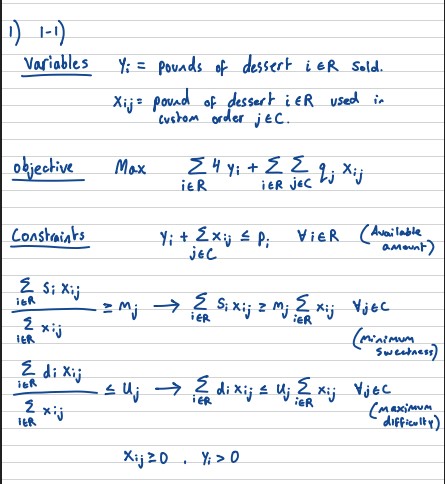 1) 1-1)
Variables Yi = pounds of dessert i ∈ R sold.
Xij = pound of dessert i ∈ R used in
custom order j ∈ C.
objective Max Σ_{i∈R} 4 yi + Σ_{i∈R} Σ_{j∈C} qj xij
Constraints yi + Σ_{j∈C} xij ≤ pi ∀ i ∈ R (Available
amount)
Σ_{i∈R} si xij / Σ_{i∈R} xij ≥ mj → Σ_{i∈R} si xij ≥ mj Σ_{i∈R} xij ∀ j ∈ C
(minimum
sweetness)
Σ_{i∈R} di xij / Σ_{i∈R} xij ≤ uj → Σ_{i∈R} di xij ≤ uj Σ_{i∈R} xij ∀ j ∈ C
(maximum
difficulty)
xij ≥ 0 , yi > 0